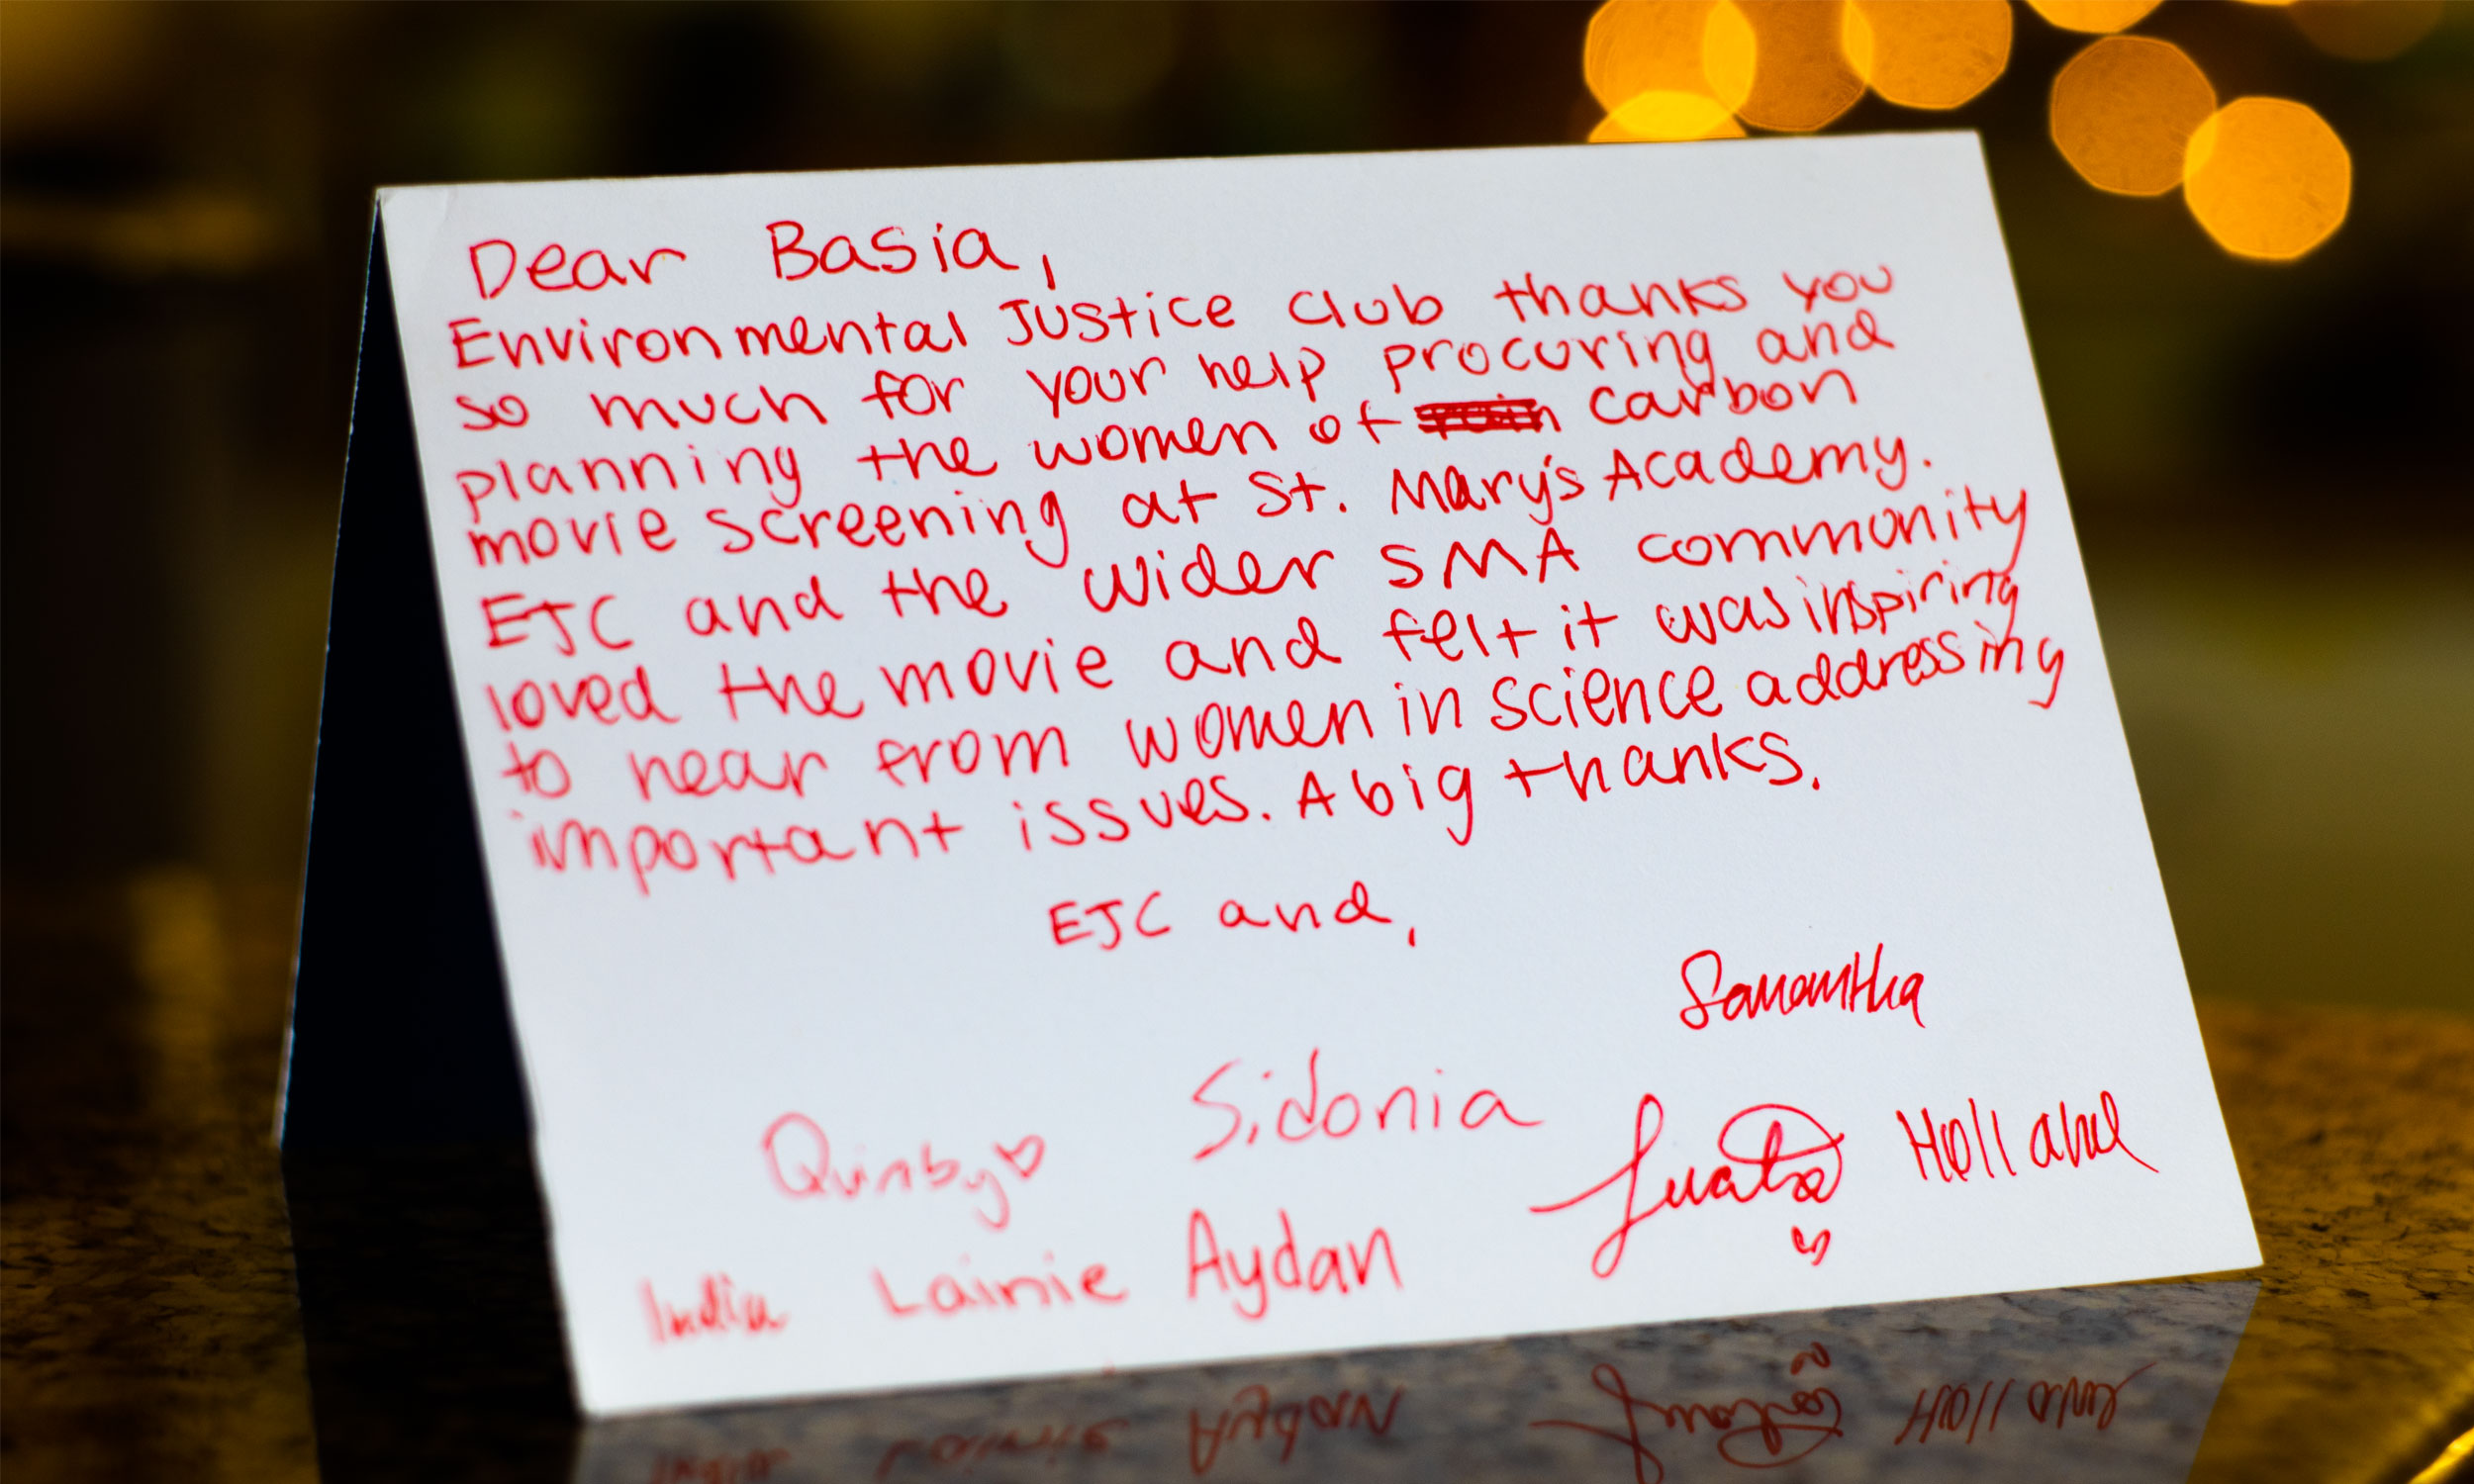 Dear Basia,
Environmental Justice Club thanks you
so much for your help procuring and
planning the women of carbon
movie screening at St. Mary's Academy.
EJC and the wider SMA community
loved the movie and felt it was inspiring
to hear from women in science addressing
important issues. A big thanks.
EJC and,
Samantha
Quinby Sidonia
Holland
India Lainie Aydan